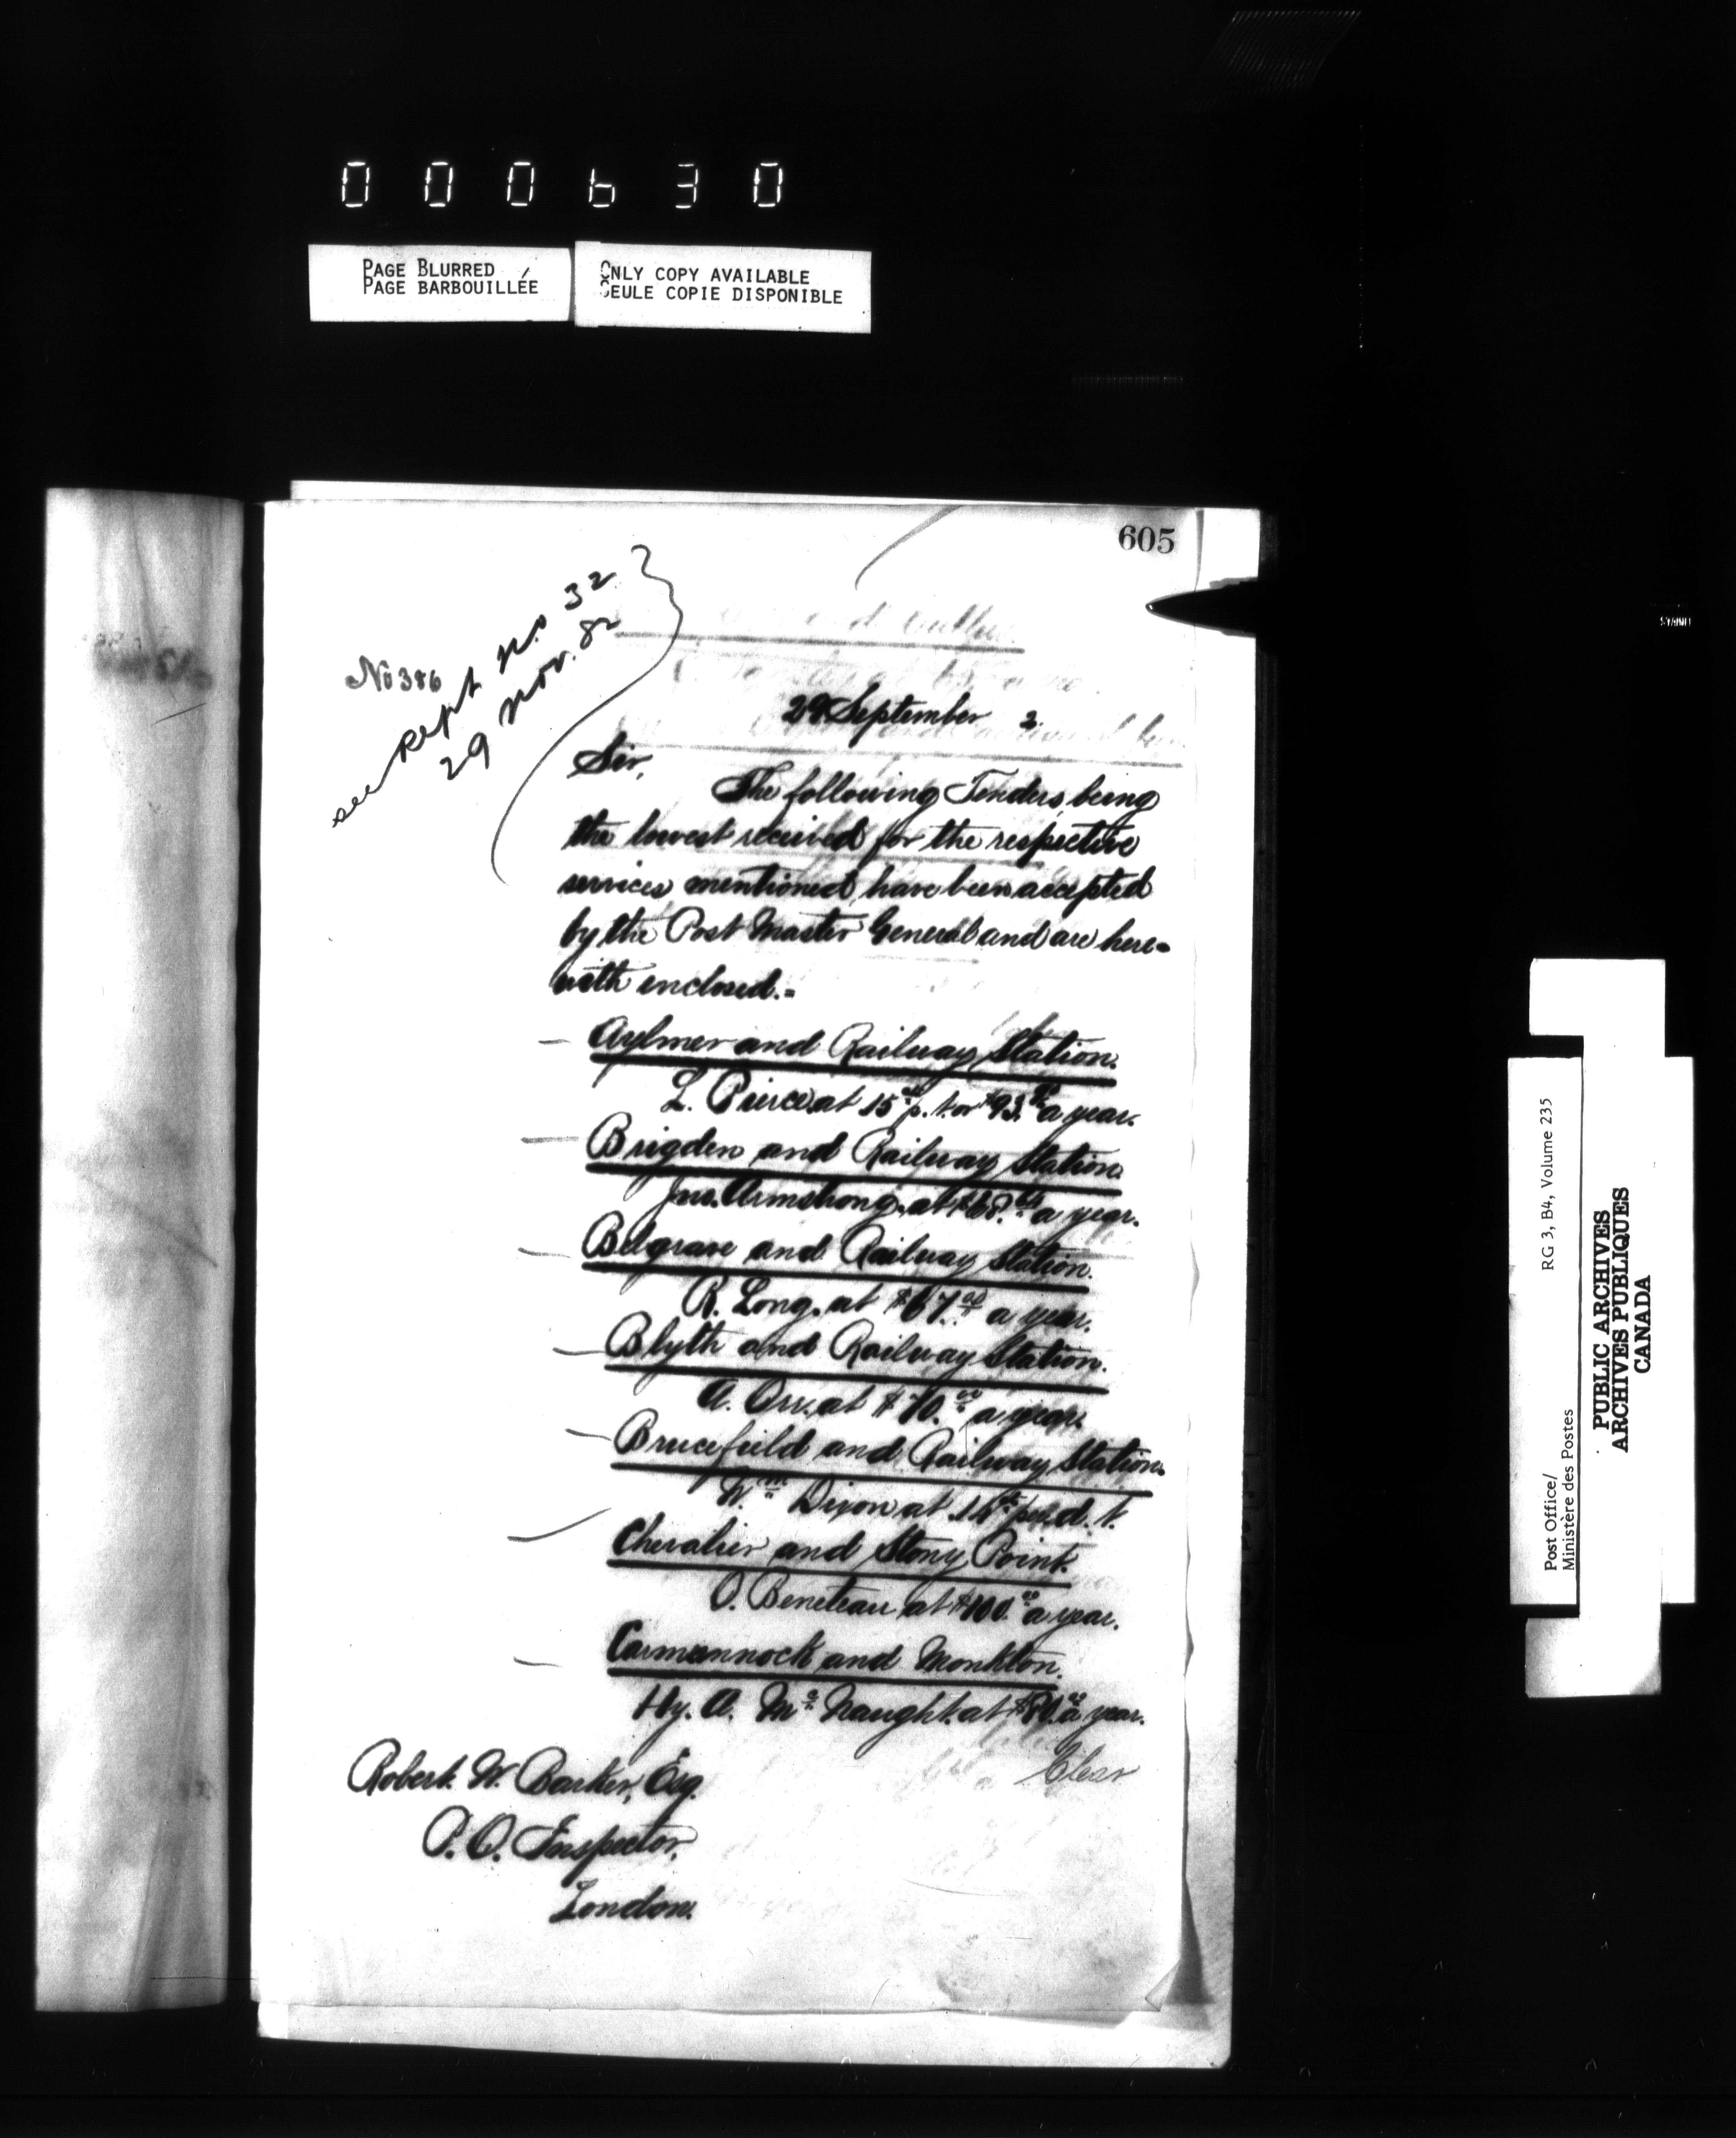 000630
PAGE BLURRED
PAGE BARBOUILLÉE
ONLY COPY AVAILABLE
SEULE COPIE DISPONIBLE
605
see Rept No 32
29 Nov. 82
No 386
29 September 2.
Sir,
The following Tenders being
the lowest received for the respective
services mentioned, have been accepted
by the Post Master General and are here=
with enclosed.=
Aylmer and Railway Station.
L. Pierce, at 15 p. t. or $93. a year.
Brigden and Railway Station.
Jas. Armstrong, at $68. a year.
Belgrave and Railway Station.
R. Long, at $67.00 a year.
Blyth and Railway Station.
A. Orr, at $70.00 a year.
Brucefield and Railway Station.
Wm Dixon at 14 per d. t.
Chevalier and Stony Point.
O. Beneteau at $100.00 a year.
Carmunnock and Monkton.
Hy. A. Mc Naught at a year.
Clear
Robert W. Barker, Esq.
P. O. Inspector,
London.
Post Office/
Ministère des Postes
RG 3, B4, Volume 235
PUBLIC ARCHIVES
ARCHIVES PUBLIQUES
CANADA